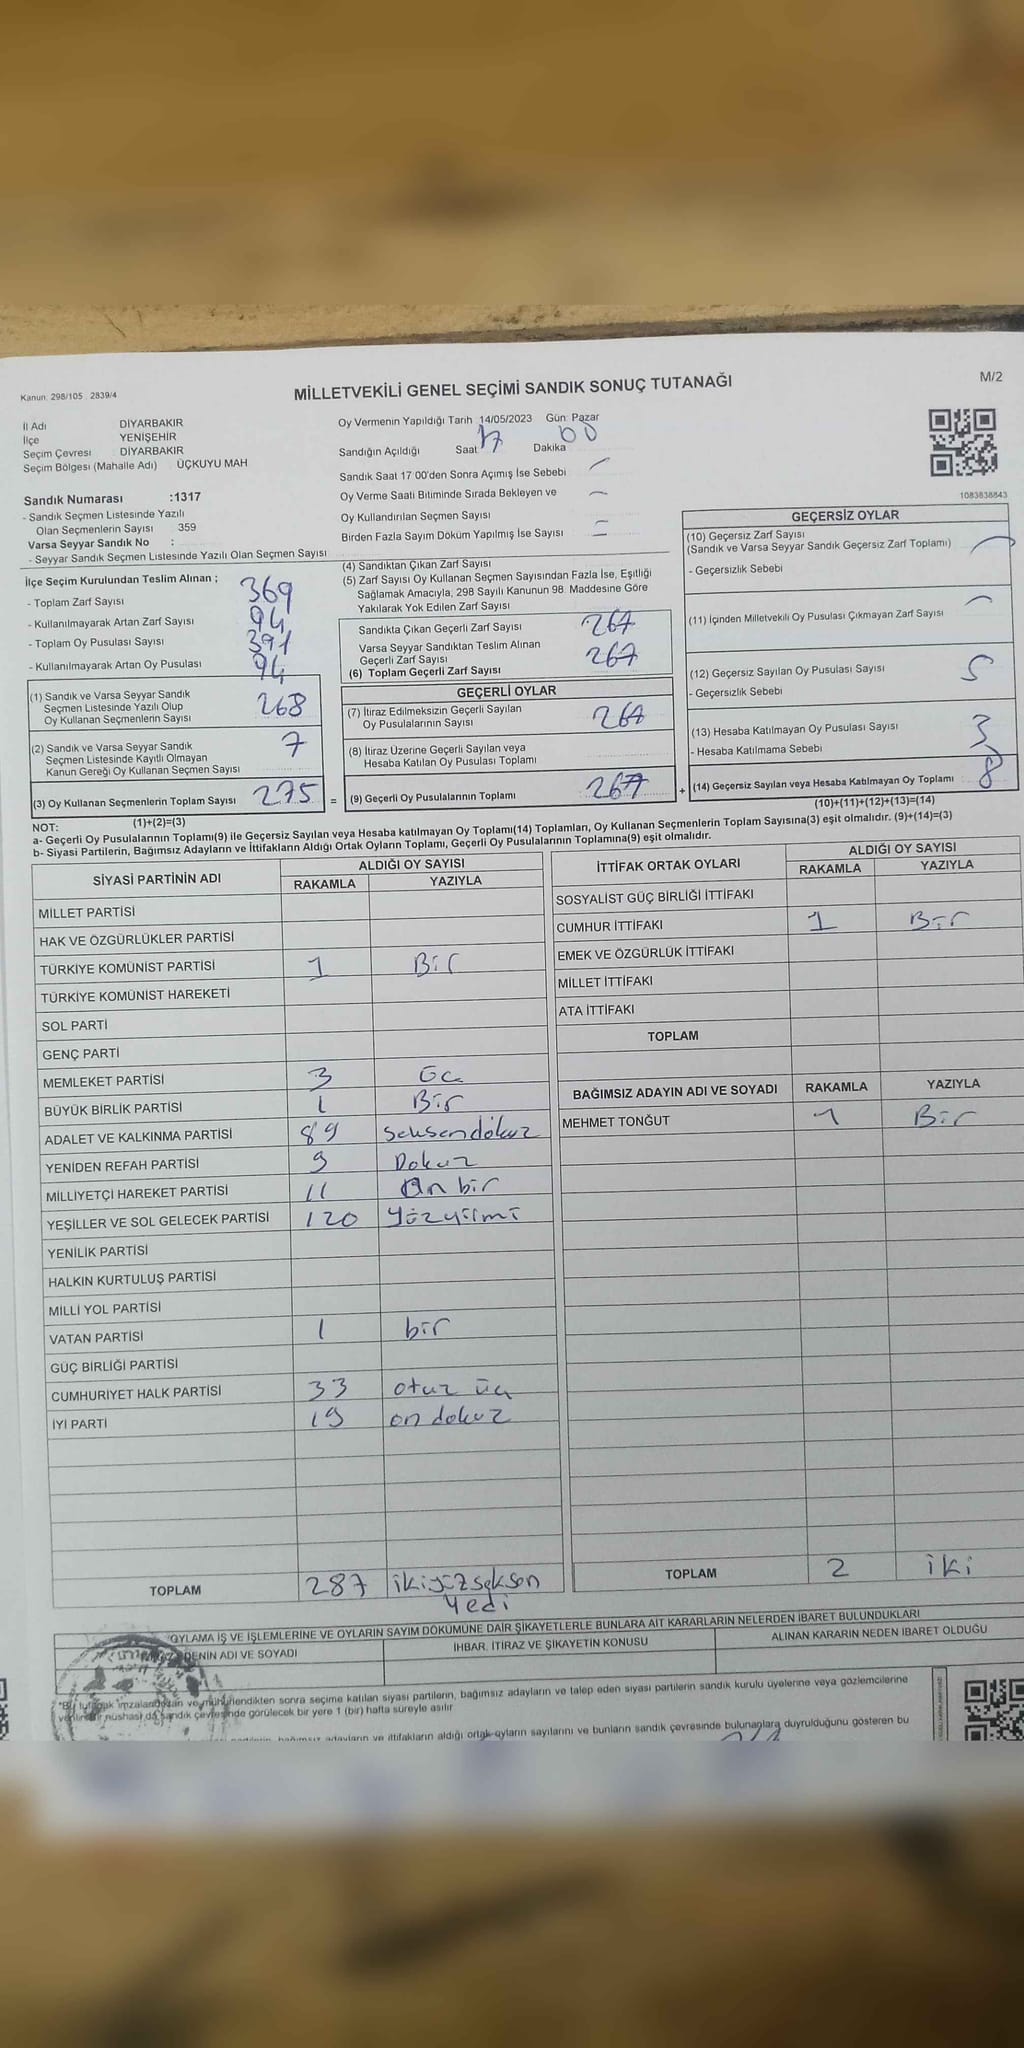 Kanun. 298/105 . 2839/4
MİLLETVEKİLİ GENEL SEÇİMİ SANDIK SONUÇ TUTANAĞI
M/2
İl Adı DİYARBAKIR
İlçe YENİŞEHİR
Seçim Çevresi DİYARBAKIR
Seçim Bölgesi (Mahalle Adı) ÜÇKUYU MAH
Sandık Numarası :1317
- Sandık Seçmen Listesinde Yazılı
Olan Seçmenlerin Sayısı 359
Varsa Seyyar Sandık No :
- Seyyar Sandık Seçmen Listesinde Yazılı Olan Seçmen Sayısı
Oy Vermenin Yapıldığı Tarih 14/05/2023 Gün: Pazar
Sandığın Açıldığı Saat 17 Dakika 00
Sandık Saat 17 00'den Sonra Açımış İse Sebebi
Oy Verme Saati Bitiminde Sırada Bekleyen ve
Oy Kullandırılan Seçmen Sayısı
Birden Fazla Sayım Döküm Yapılmış İse Sayısı
1083838843
İlçe Seçim Kurulundan Teslim Alınan ;
- Toplam Zarf Sayısı 369
- Kullanılmayarak Artan Zarf Sayısı 94
- Toplam Oy Pusulası Sayısı 391
- Kullanılmayarak Artan Oy Pusulası 94
(1) Sandık ve Varsa Seyyar Sandık
Seçmen Listesinde Yazılı Olup
Oy Kullanan Seçmenlerin Sayısı 268
(2) Sandık ve Varsa Seyyar Sandık
Seçmen Listesinde Kayıtlı Olmayan
Kanun Gereği Oy Kullanan Seçmen Sayısı 7
(3) Oy Kullanan Seçmenlerin Toplam Sayısı 275
(1)+(2)=(3)
(4) Sandıktan Çıkan Zarf Sayısı
(5) Zarf Sayısı Oy Kullanan Seçmen Sayısından Fazla İse, Eşitliği
Sağlamak Amacıyla, 298 Sayılı Kanunun 98. Maddesine Göre
Yakılarak Yok Edilen Zarf Sayısı
Sandıkta Çıkan Geçerli Zarf Sayısı 267
Varsa Seyyar Sandıktan Teslim Alınan
Geçerli Zarf Sayısı 267
(6) Toplam Geçerli Zarf Sayısı
GEÇERLİ OYLAR
(7) İtiraz Edilmeksizin Geçerli Sayılan
Oy Pusulalarının Sayısı 267
(8) İtiraz Üzerine Geçerli Sayılan veya
Hesaba Katılan Oy Pusulası Toplamı
= (9) Geçerli Oy Pusulalarının Toplamı 267
GEÇERSİZ OYLAR
(10) Geçersiz Zarf Sayısı
(Sandık ve Varsa Seyyar Sandık Geçersiz Zarf Toplamı)
- Geçersizlik Sebebi
(11) İçinden Milletvekili Oy Pusulası Çıkmayan Zarf Sayısı
(12) Geçersiz Sayılan Oy Pusulası Sayısı 5
- Geçersizlik Sebebi
(13) Hesaba Katılmayan Oy Pusulası Sayısı 3
- Hesaba Katılmama Sebebi
+ (14) Geçersiz Sayılan veya Hesaba Katılmayan Oy Toplamı 8
(10)+(11)+(12)+(13)=(14)
NOT:
a- Geçerli Oy Pusulalarının Toplamı(9) ile Geçersiz Sayılan veya Hesaba katılmayan Oy Toplamı(14) Toplamları, Oy Kullanan Seçmenlerin Toplam Sayısına(3) eşit olmalıdır. (9)+(14)=(3)
b- Siyasi Partilerin, Bağımsız Adayların ve İttifakların Aldığı Ortak Oyların Toplamı, Geçerli Oy Pusulalarının Toplamına(9) eşit olmalıdır.
SİYASİ PARTİNİN ADI ALDIĞI OY SAYISI
RAKAMLA YAZIYLA
MİLLET PARTİSİ
HAK VE ÖZGÜRLÜKLER PARTİSİ
TÜRKİYE KOMÜNİST PARTİSİ 1 Bir
TÜRKİYE KOMÜNİST HAREKETİ
SOL PARTİ
GENÇ PARTİ
MEMLEKET PARTİSİ 3 Üç
BÜYÜK BİRLİK PARTİSİ 1 Bir
ADALET VE KALKINMA PARTİSİ 89 seksendokuz
YENİDEN REFAH PARTİSİ 9 Dokuz
MİLLİYETÇİ HAREKET PARTİSİ 11 On bir
YEŞİLLER VE SOL GELECEK PARTİSİ 120 yüzyirmi
YENİLİK PARTİSİ
HALKIN KURTULUŞ PARTİSİ
MİLLİ YOL PARTİSİ
VATAN PARTİSİ 1 bir
GÜÇ BİRLİĞİ PARTİSİ
CUMHURİYET HALK PARTİSİ 33 otuz üç
İYİ PARTİ 19 on dokuz
TOPLAM 287 ikiyüzseksen
yedi
İTTİFAK ORTAK OYLARI ALDIĞI OY SAYISI
RAKAMLA YAZIYLA
SOSYALİST GÜÇ BİRLİĞİ İTTİFAKI
CUMHUR İTTİFAKI 1 Bir
EMEK VE ÖZGÜRLÜK İTTİFAKI
MİLLET İTTİFAKI
ATA İTTİFAKI
TOPLAM
BAĞIMSIZ ADAYIN ADI VE SOYADI RAKAMLA YAZIYLA
MEHMET TONĞUT 1 Bir
TOPLAM 2 iki
OYLAMA İŞ VE İŞLEMLERİNE VE OYLARIN SAYIM DÖKÜMÜNE DAİR ŞİKAYETLERLE BUNLARA AİT KARARLARIN NELERDEN İBARET BULUNDUKLARI
DENİN ADI VE SOYADI İHBAR, İTİRAZ VE ŞİKAYETİN KONUSU ALINAN KARARIN NEDEN İBARET OLDUĞU
*Bu tutanak imzalandıktan ve mühürlendikten sonra seçime katılan siyasi partilerin, bağımsız adayların ve talep eden siyasi partilerin sandık kurulu üyelerine veya gözlemcilerine
nüshası da sandık çevresinde görülecek bir yere 1 (bir) hafta süreyle asılır
bağımsız adayların ve ittifakların aldığı ortak oyların sayılarını ve bunların sandık çevresinde bulunanlara duyrulduğunu gösteren bu